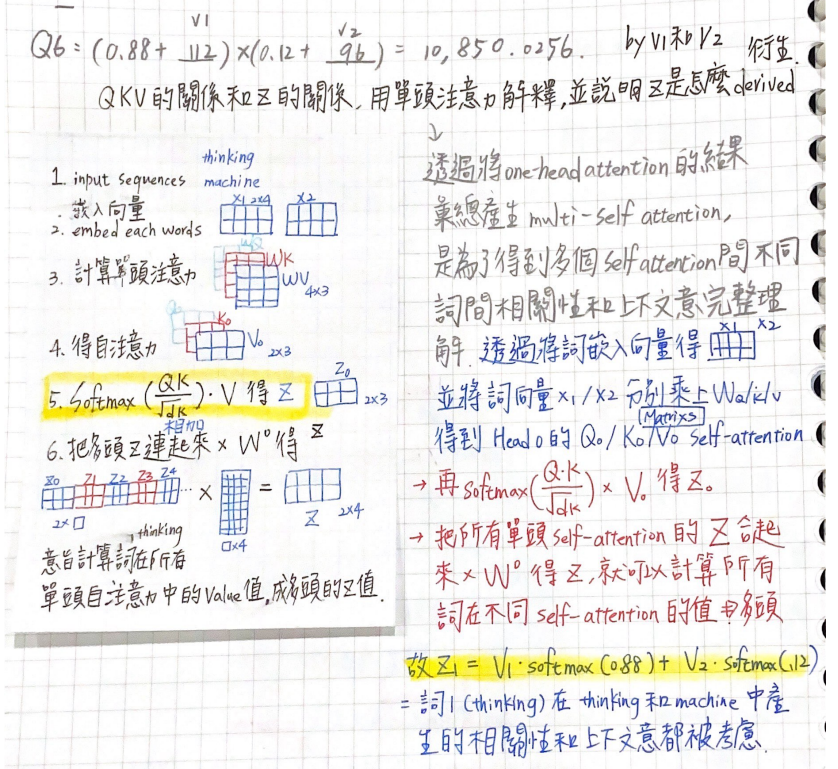 V1 V2
Q6 = (0.88 + 112) × (0.12 + 96) = 10,850.0256. by V1和V2 衍生.
QKV的關係和Z的關係, 用單頭注意力解釋, 並說明Z是怎麼derived
thinking
1. input sequences machine
嵌入向量 X1 2x4 X2
2. embed each words
WQ
WK
3. 計算單頭注意力 WV
4x3
Q0
K0
4. 得自注意力 V0 2x3
5. Softmax (QK/√dK)·V 得 Z Z0 2x3
相加
6. 把多頭Z連起來 × W° 得 Z
Z0 Z1 Z2 Z3 Z4
... × =
2×□ □x4 Z 2x4
thinking
意旨計算詞在所有
單頭自注意力中的Value值,成多頭的Z值.
↓
透過將one-head attention 的結果
彙總產生 multi-self attention,
是為了得到多個 self attention 間不同
詞間相關性和上下文意完整理
解. 透過將詞嵌入向量得 X1 X2
並將詞向量 X1 / X2 分別乘上 WQ/K/V
Matrixs
得到 Head 0 的 Q0 / K0 / V0 self-attention
→ 再 Softmax(Q·K/√dK) × V0 得 Z0
→ 把所有單頭self-attention 的 Z 合起
來 × W° 得 Z, 就可以計算所有
詞在不同 self-attention 的值 多頭
故 Z1 = V1·softmax(0.88) + V2·softmax(.12)
= 詞1 (thinking) 在 thinking 和 machine 中產
生的相關性和上下文意都被考慮.